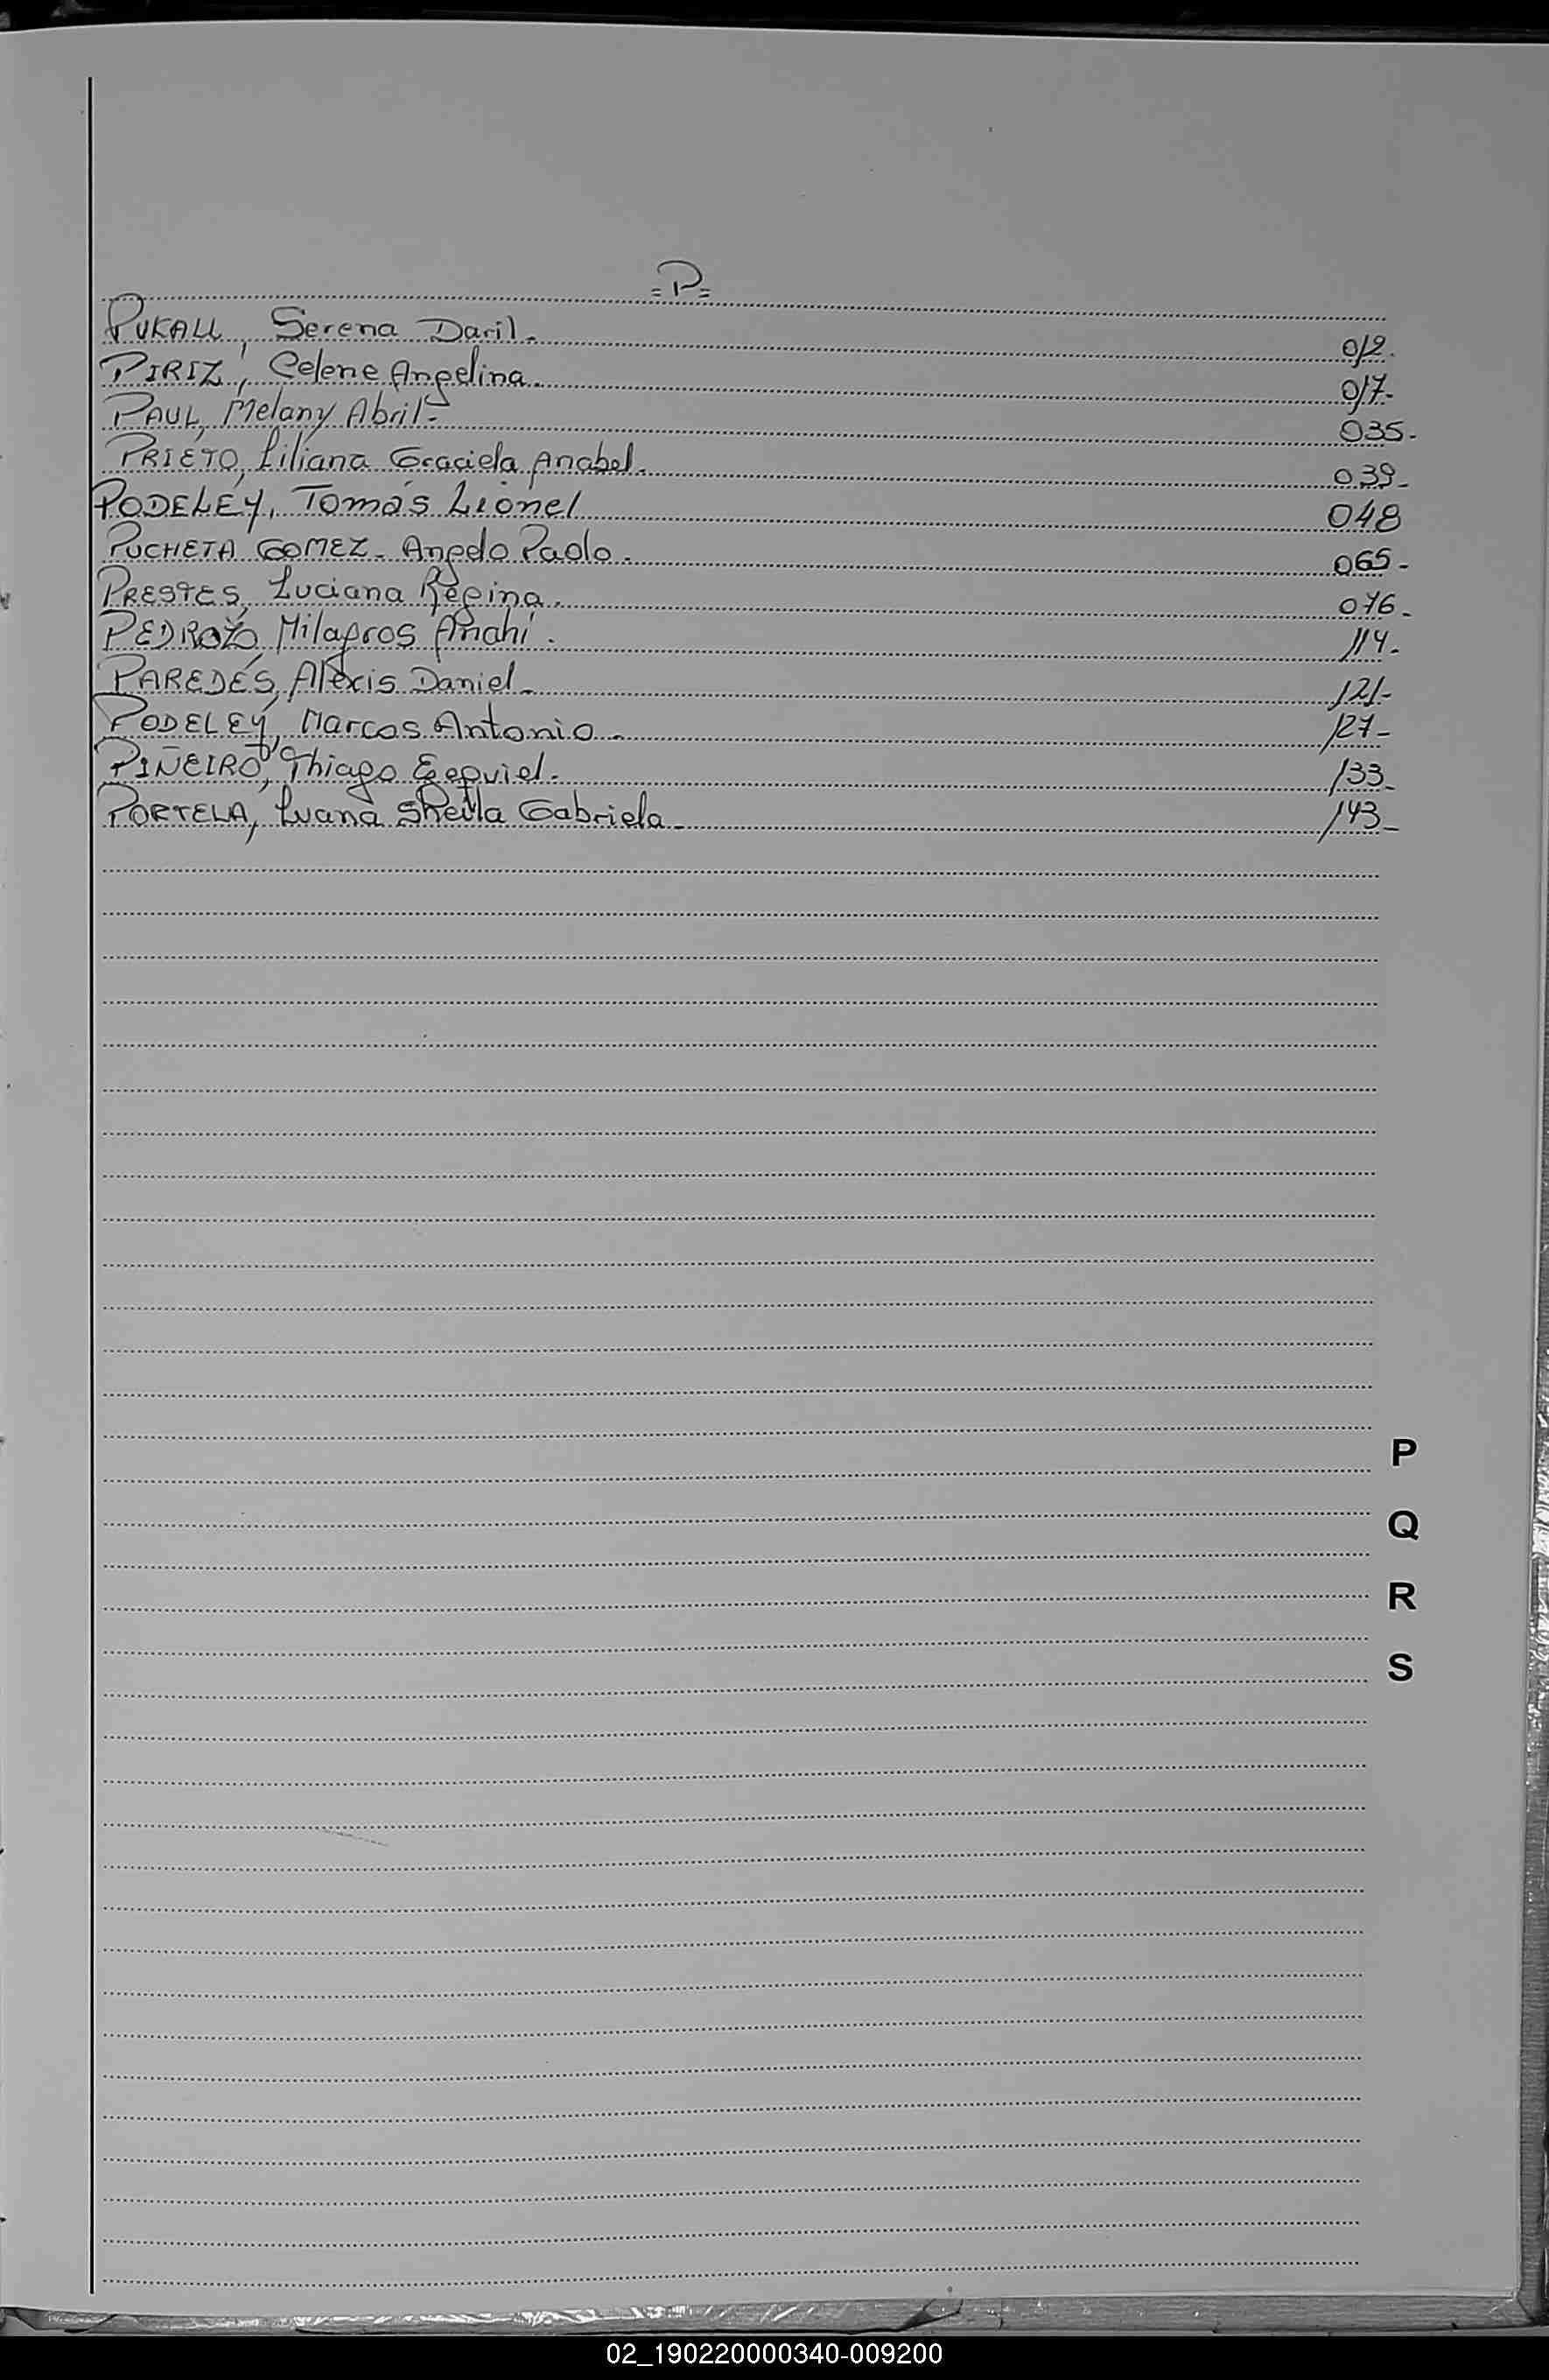 =P=
PUKALL, Serena Daril.- 012.
PIRIZ, Celene Angelina.- 017-
PAUL, Melany Abril- 035-
PRIETO, Liliana Graciela Anabel. 039-
PODELEY, Tomás Lionel 048
PUCHETA GOMEZ- Angelo Paolo. 065-
PRESTES, Luciana Regina. 076-
PEDROZO, Milagros Anahí. 114-
PAREDES, Alexis Daniel- 121-
PODELEY, Marcos Antonio- 127-
PIÑEIRO, Thiago Ezequiel. 133-
PORTELA, Luana Sheila Gabriela- 143-
P
Q
R
S
02_190220000340-009200